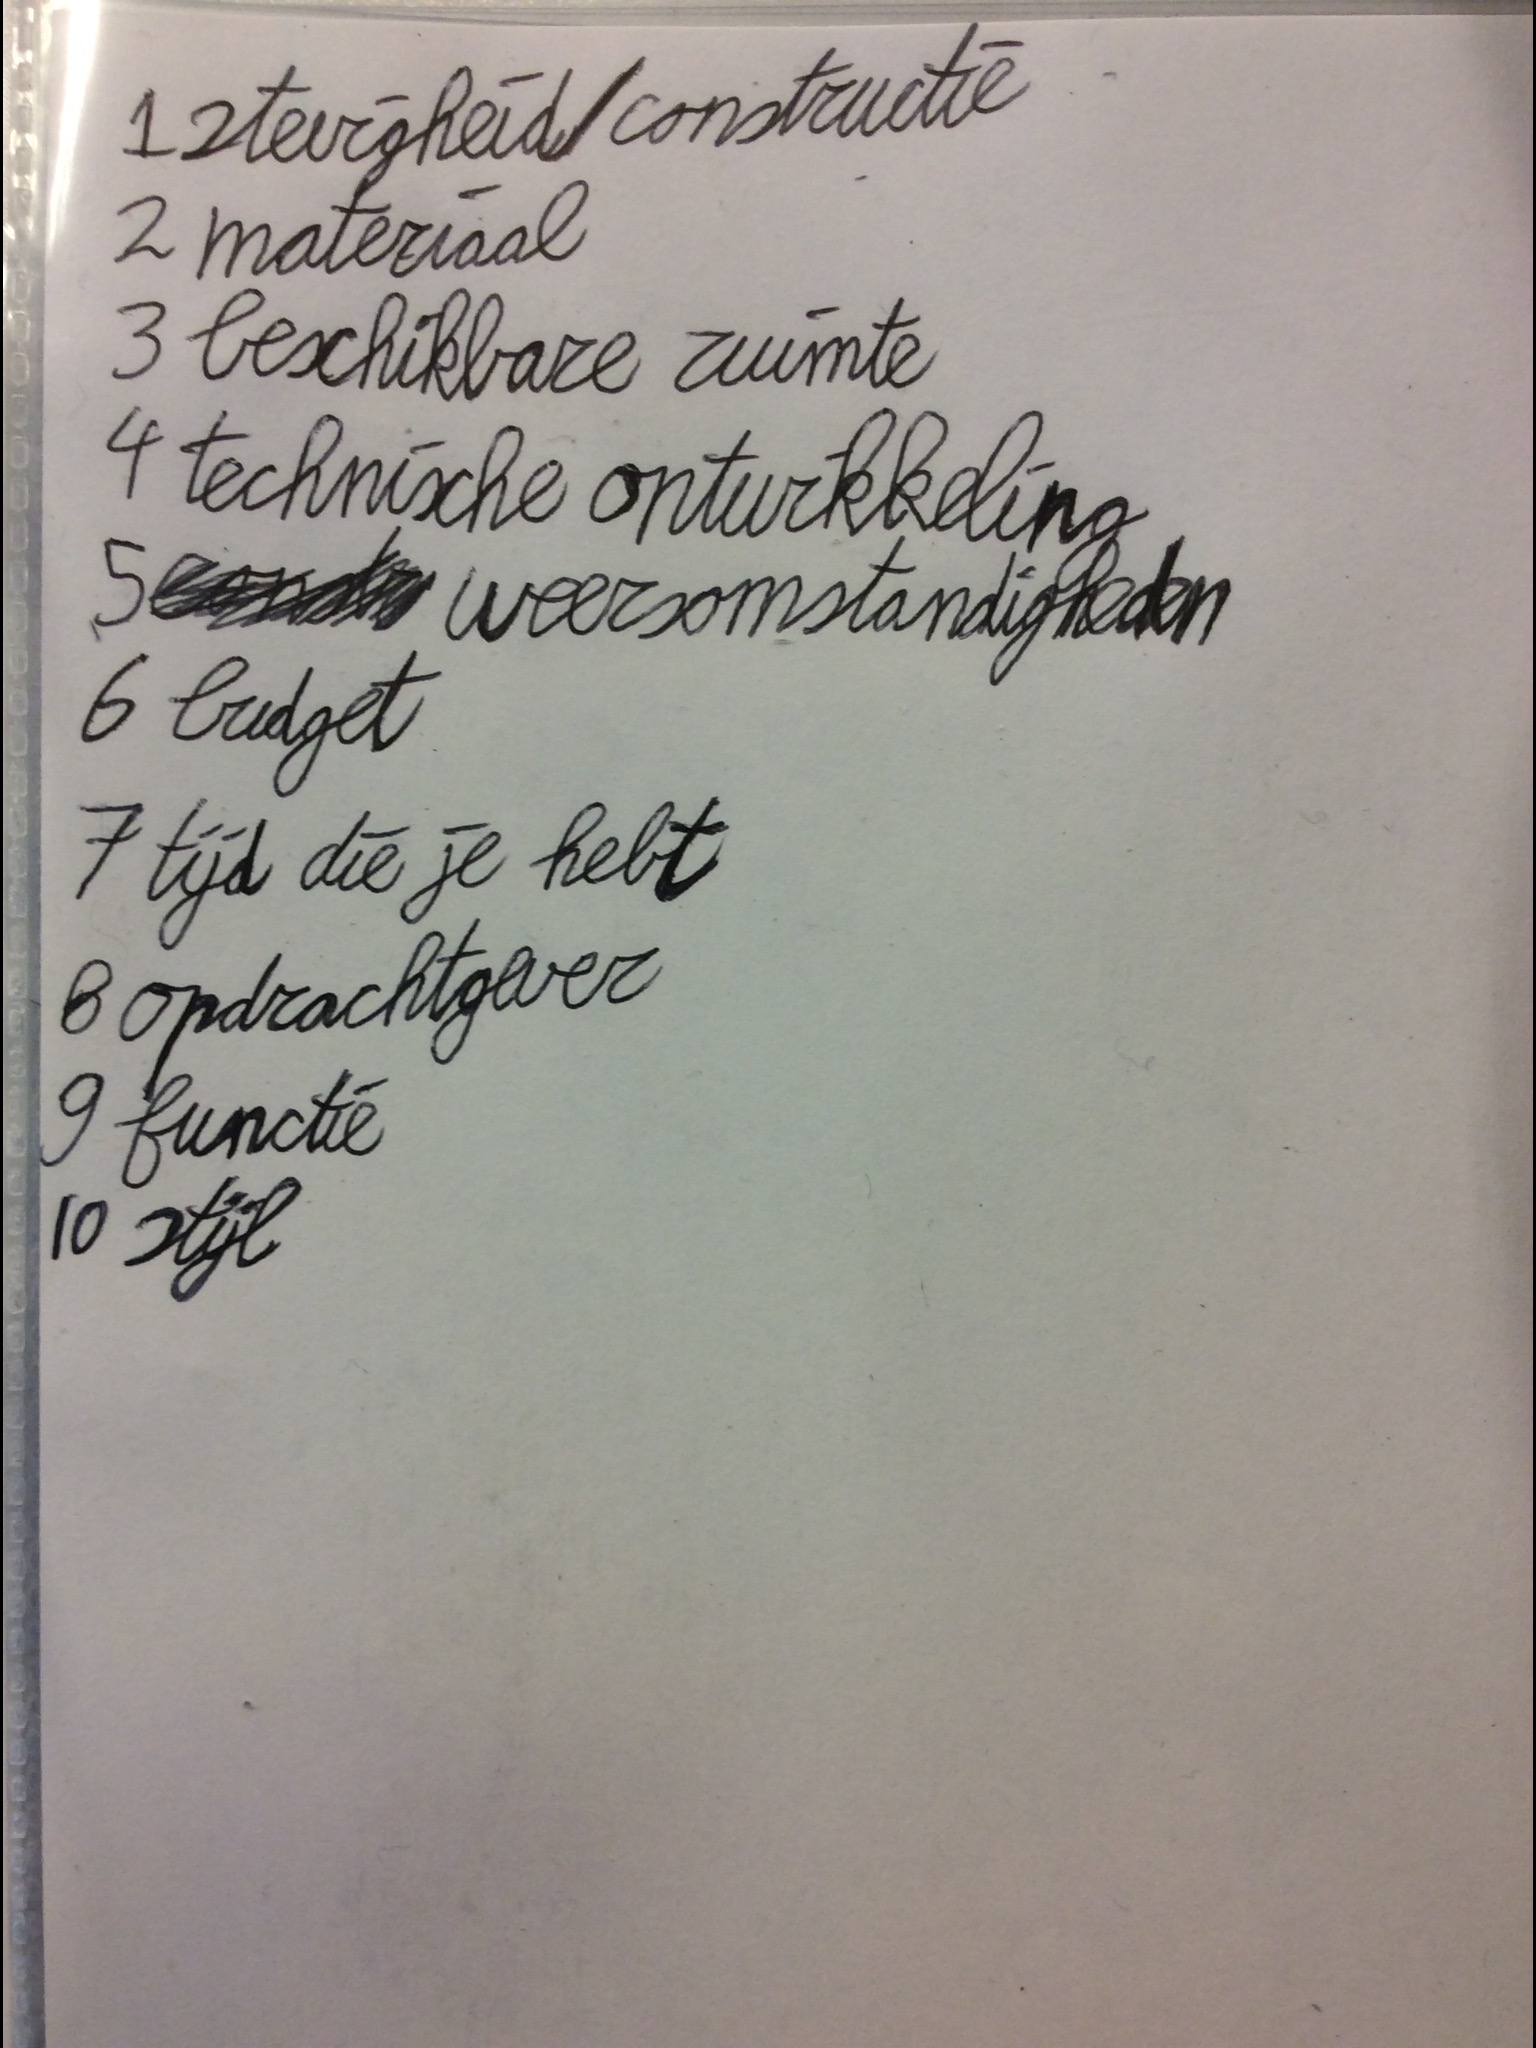 1 stevigheid/constructie
2 materiaal
3 beschikbare ruimte
4 technische ontwikkeling
5 weersomstandigheden
6 budget
7 tijd die je hebt
8 opdrachtgever
9 functie
10 stijl